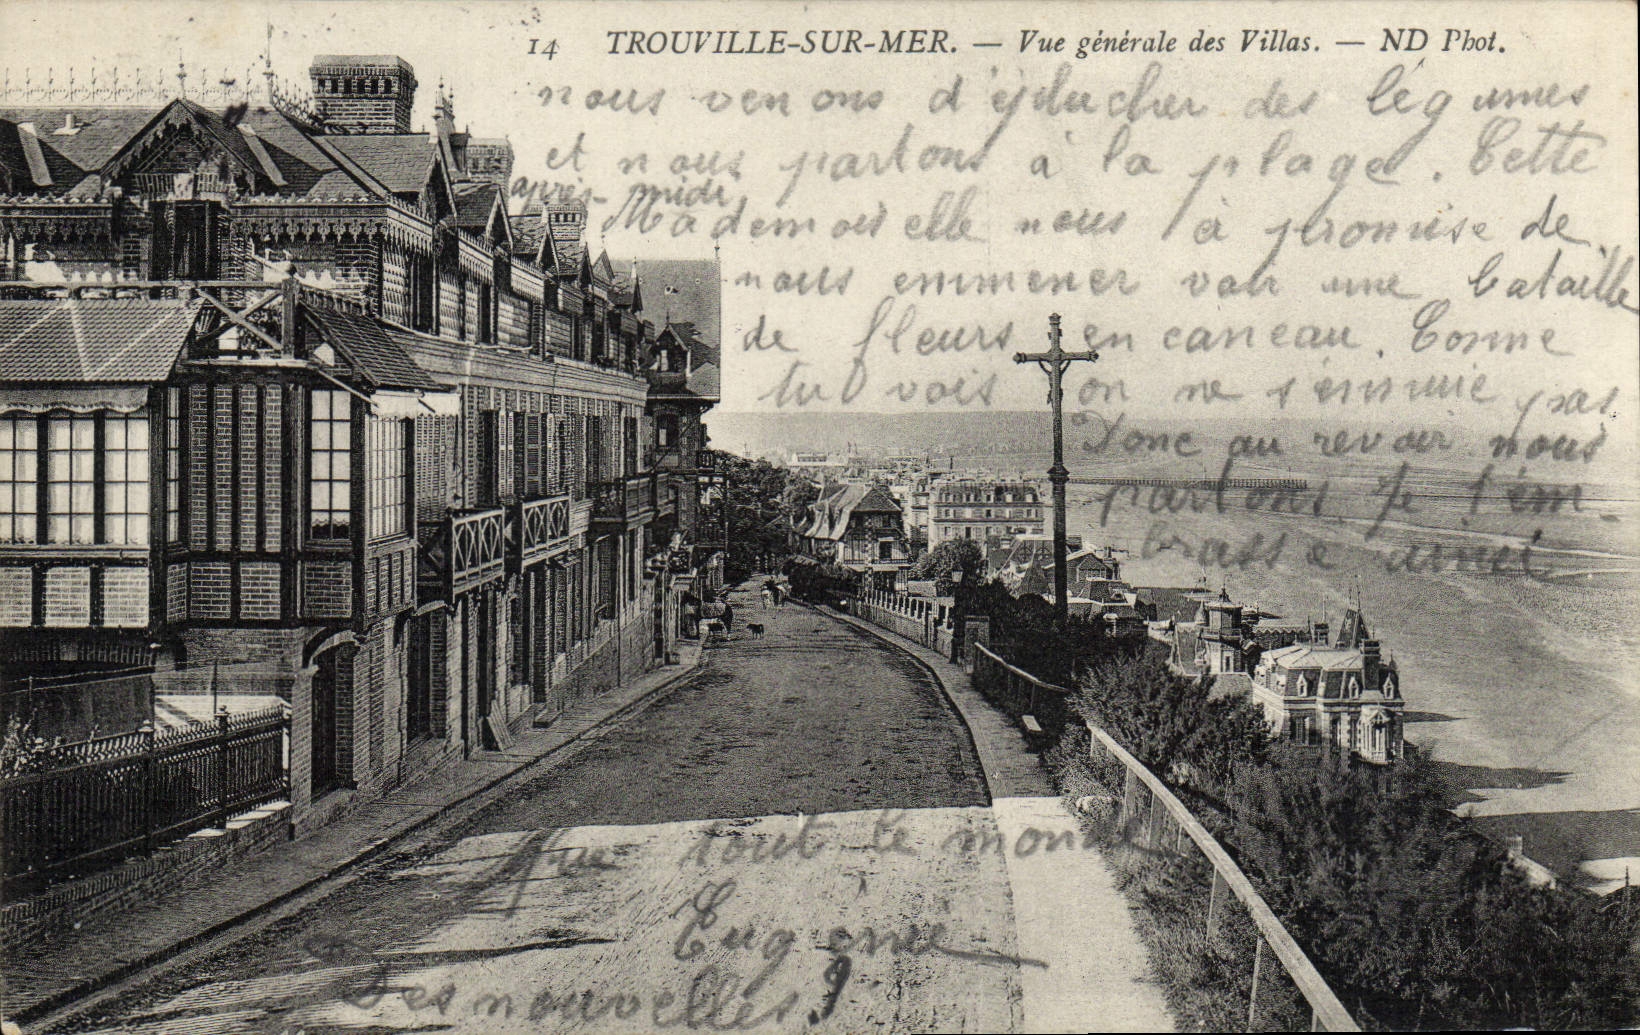 14 TROUVILLE-SUR-MER. — Vue générale des Villas. — ND Phot.
nous venons d'éplucher des légumes
et nous partons à la plage. Cette
après-midi
Mademoiselle nous a promise de
nous emmener voir une bataille
de fleurs en caneau. Comme
tu vois on ne s'ennuie pas
Donc au revoir nous
partons Je t'em-
brasse ainsi
que tout le monde
Eugenie
Des nouvelles!